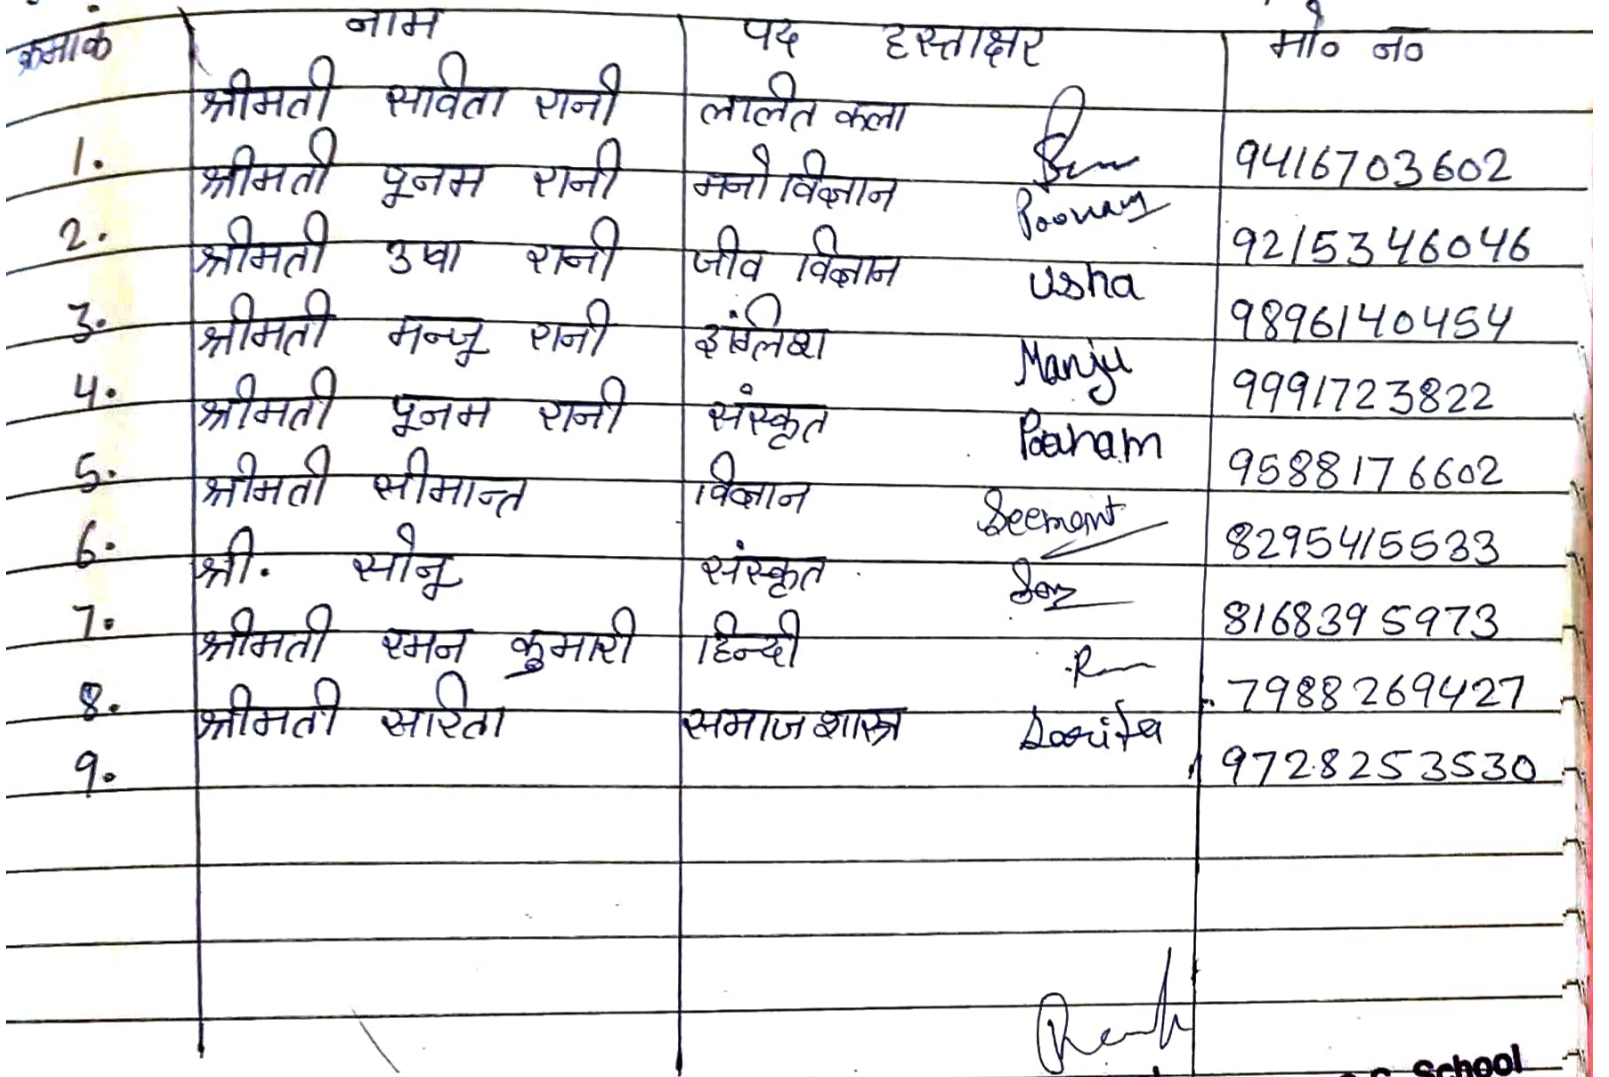 क्रमांक नाम पद हस्ताक्षर मो० न०
1. श्रीमती सविता रानी ललित कला 9416703602
2. श्रीमती पूनम रानी मनोविज्ञान Poonam 9215346046
3. श्रीमती उषा रानी जीव विज्ञान Usha 9896140454
4. श्रीमती मन्जू रानी इंग्लिश Manju 9991723822
5. श्रीमती पूनम रानी संस्कृत Poonam 9588176602
6. श्रीमती सीमान्त विज्ञान Seemant 8295415533
7. श्री. सोनू संस्कृत 8168395973
8. श्रीमती रमन कुमारी हिन्दी 7988269427
9. श्रीमती सरिता समाज शास्त्र Sarita 9728253530
School